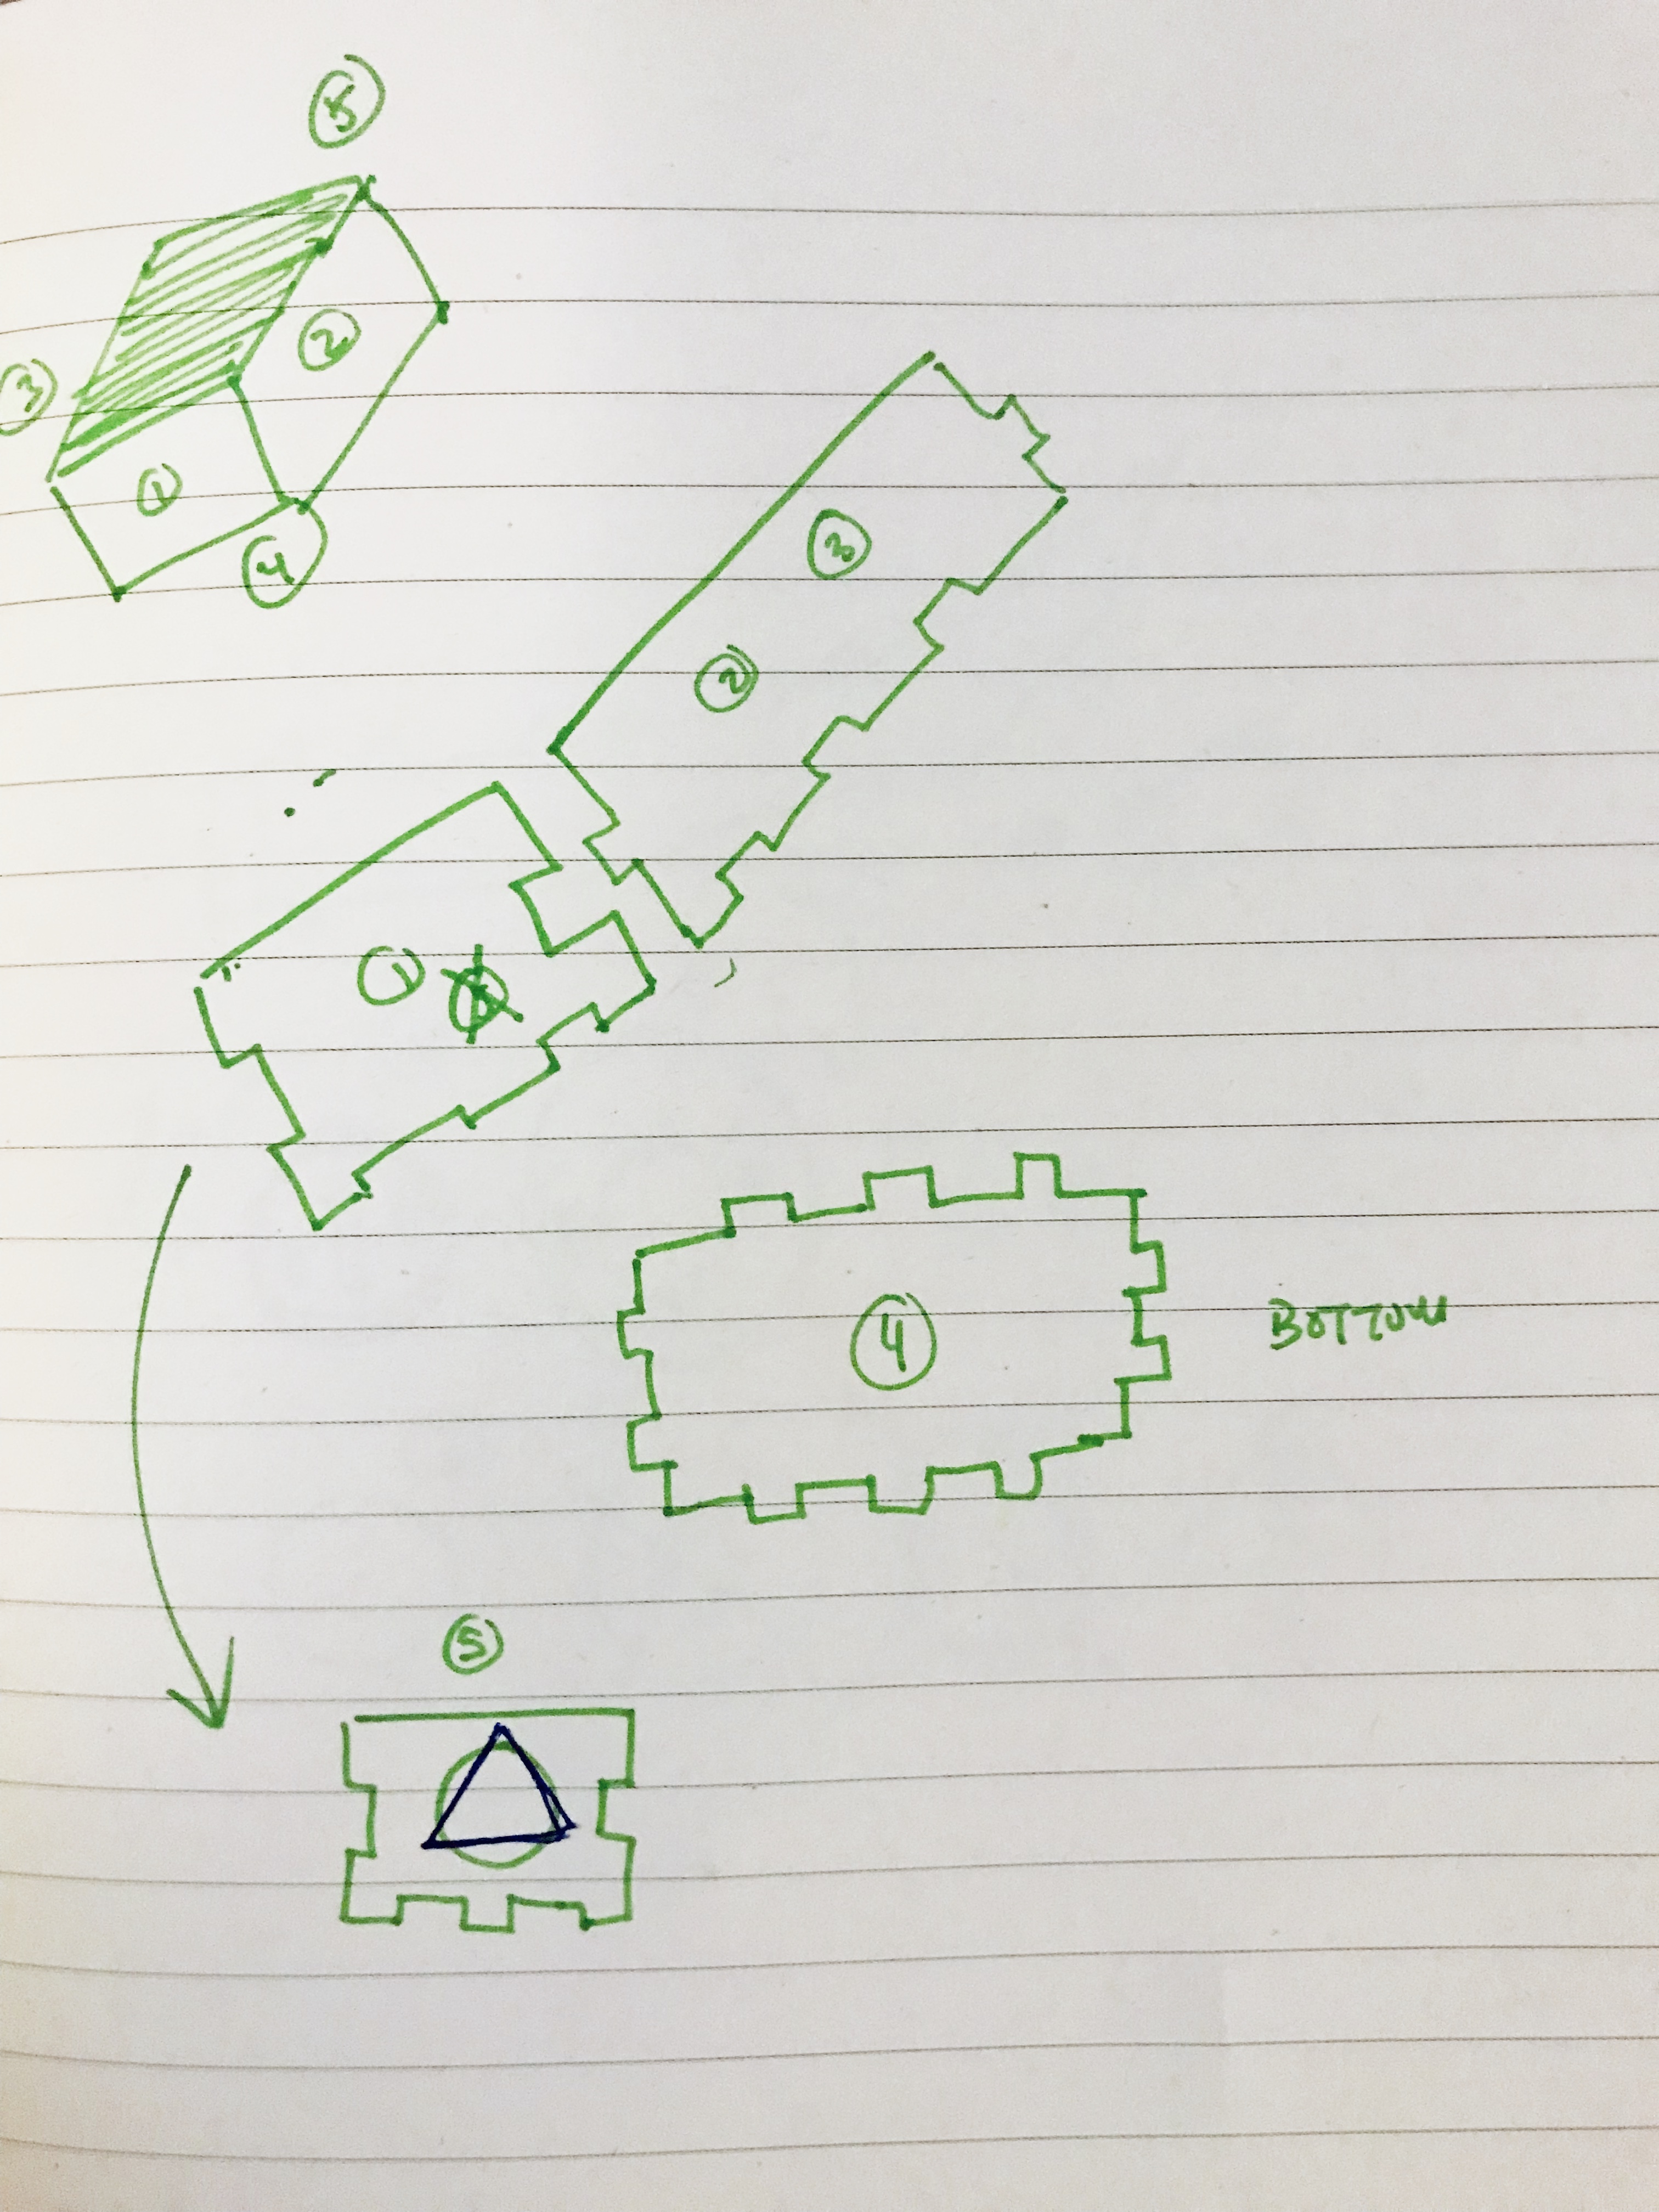 5
2
3
1
4
3
2
1
4
BOTTOM
5